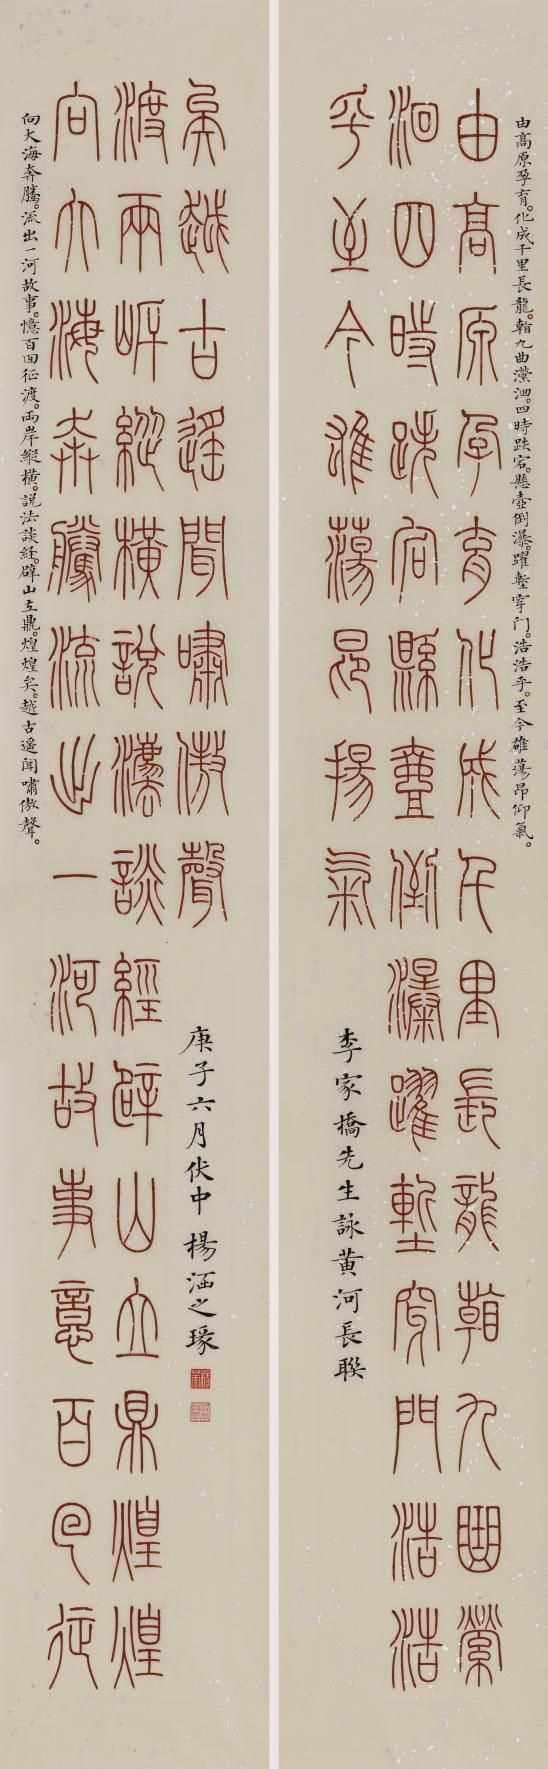 由高原孕育化成千里長龍翰九曲瀠
洄四時跌宕懸壺倒瀑躍塹穿門浩浩
乎至今雄蕩昂揚氣
由高原孕育。化成千里長龍。翰九曲瀠洄。四時跌宕。懸壺倒瀑。躍塹穿门。浩浩乎。至今雄蕩昂仰氣。
李家橋先生詠黄河長聯
向大海奔騰流出一河故事意百回征
渡兩岸縱橫說灋談經辟山立鼎煌煌
矣越古遥聞嘯傲聲
向大海奔騰。流出一河故事。憶百回征渡。兩岸縱橫。説法談経。辟山立鼎。煌煌矣。越古遥闻嘯傲聲。
庚子六月伏中 楊涵之瑑